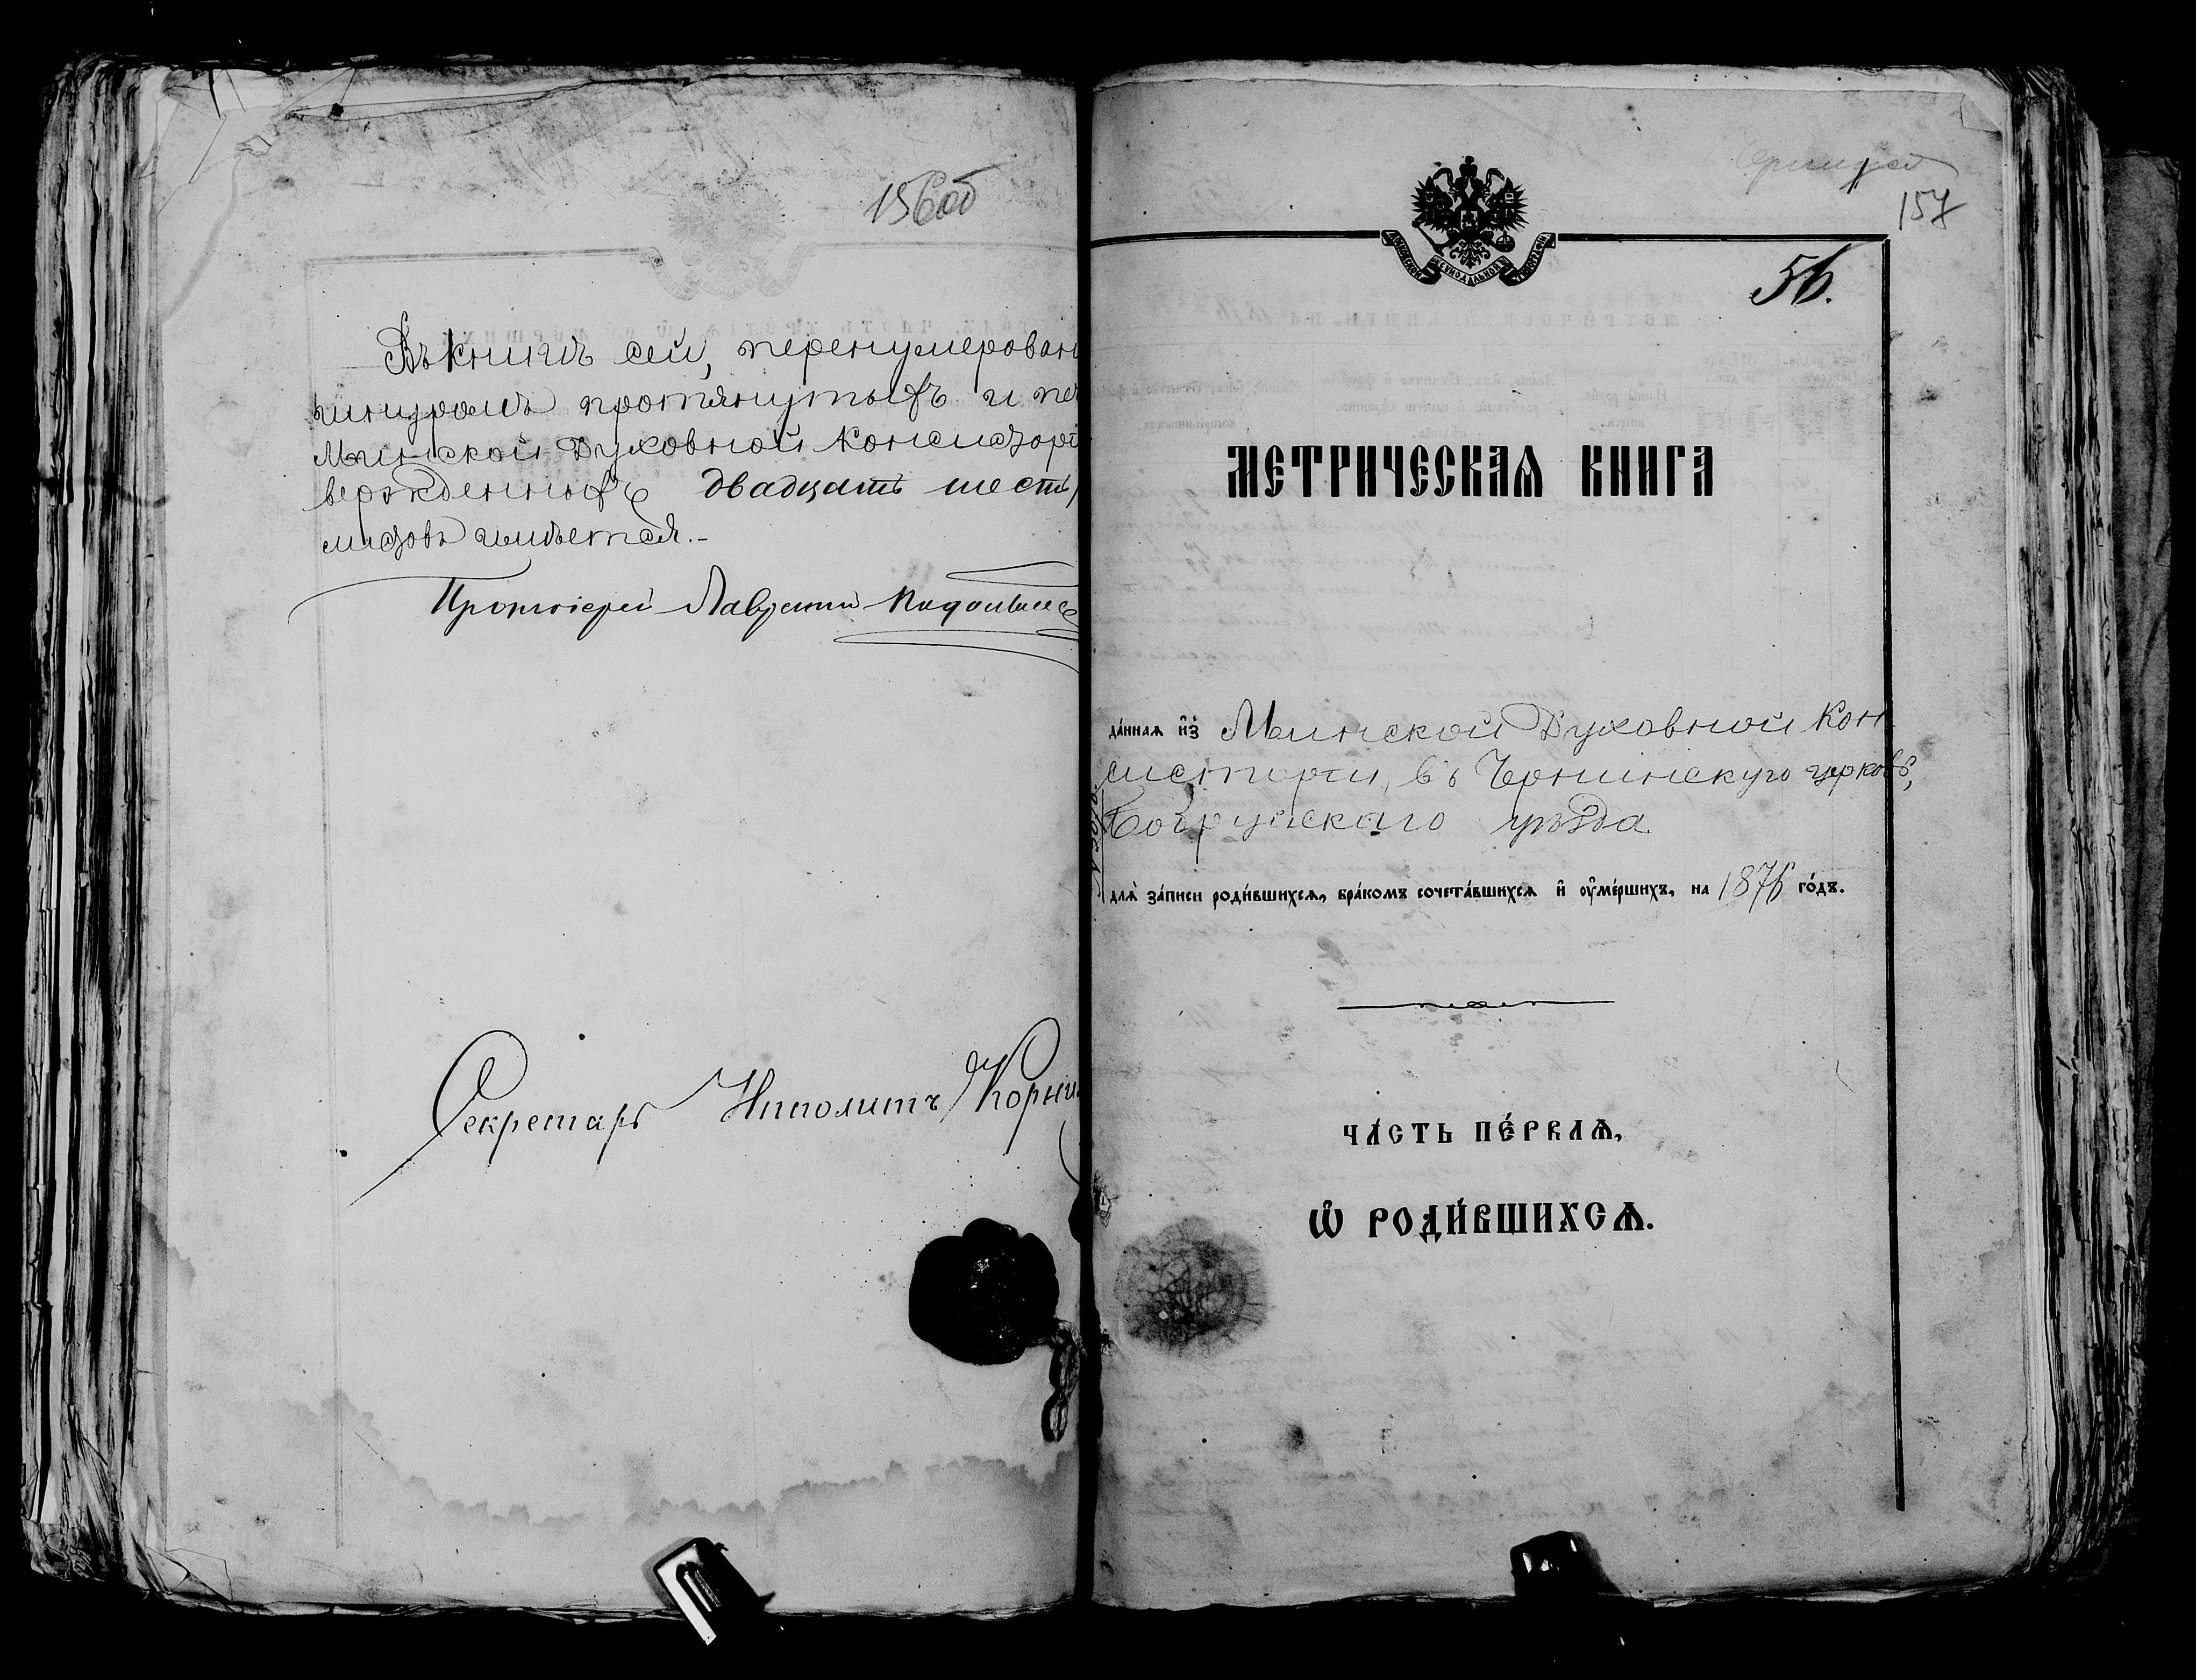 156об
Въ книгѣ сей, перенумерован
шнуромъ протянутыхъ и пе
Минской Духовной Консистор
вержденныхъ двадцать шесть
листовъ имѣется.-
Протоіерей Лаврентий
Секретарь Ипполитъ Корни
157
МОСКОВСКОЙ СѴНОДАЛЬНОЙ ТИПОГРАФІИ
56.
МЕТРИЧЕСКАѦ КНИГА
да́ннаѧ и҆з̾ Минской Духовной Кон
систоріи, въ Чернинскую церковь,
Бобруйскаго уѣзда.
длѧ̀ за́писи роди́вшихсѧ, бра́комъ сочета́вшихсѧ и҆ ᲂу҆ме́ршихъ, на 1876 го́дъ.
ЧА́СТЬ ПЕ́РВАѦ,
Ѡ҆ РОДИ́ВШИХСѦ.